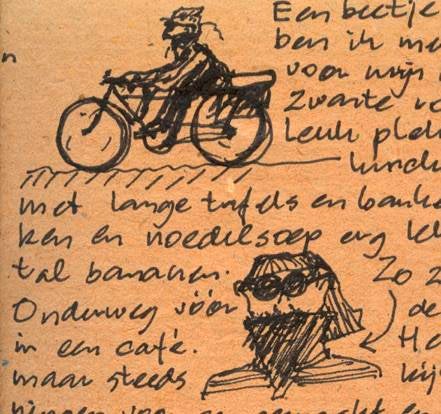 Een beetje
ben ik me
n
voor mijn
Zwarte
leuk plek
lunch
met lange tafels en bank
ken en noedelsoep erg lek
tal bananen.
Zo z
Onderweg vóór de
in een café. He
maar steeds kij